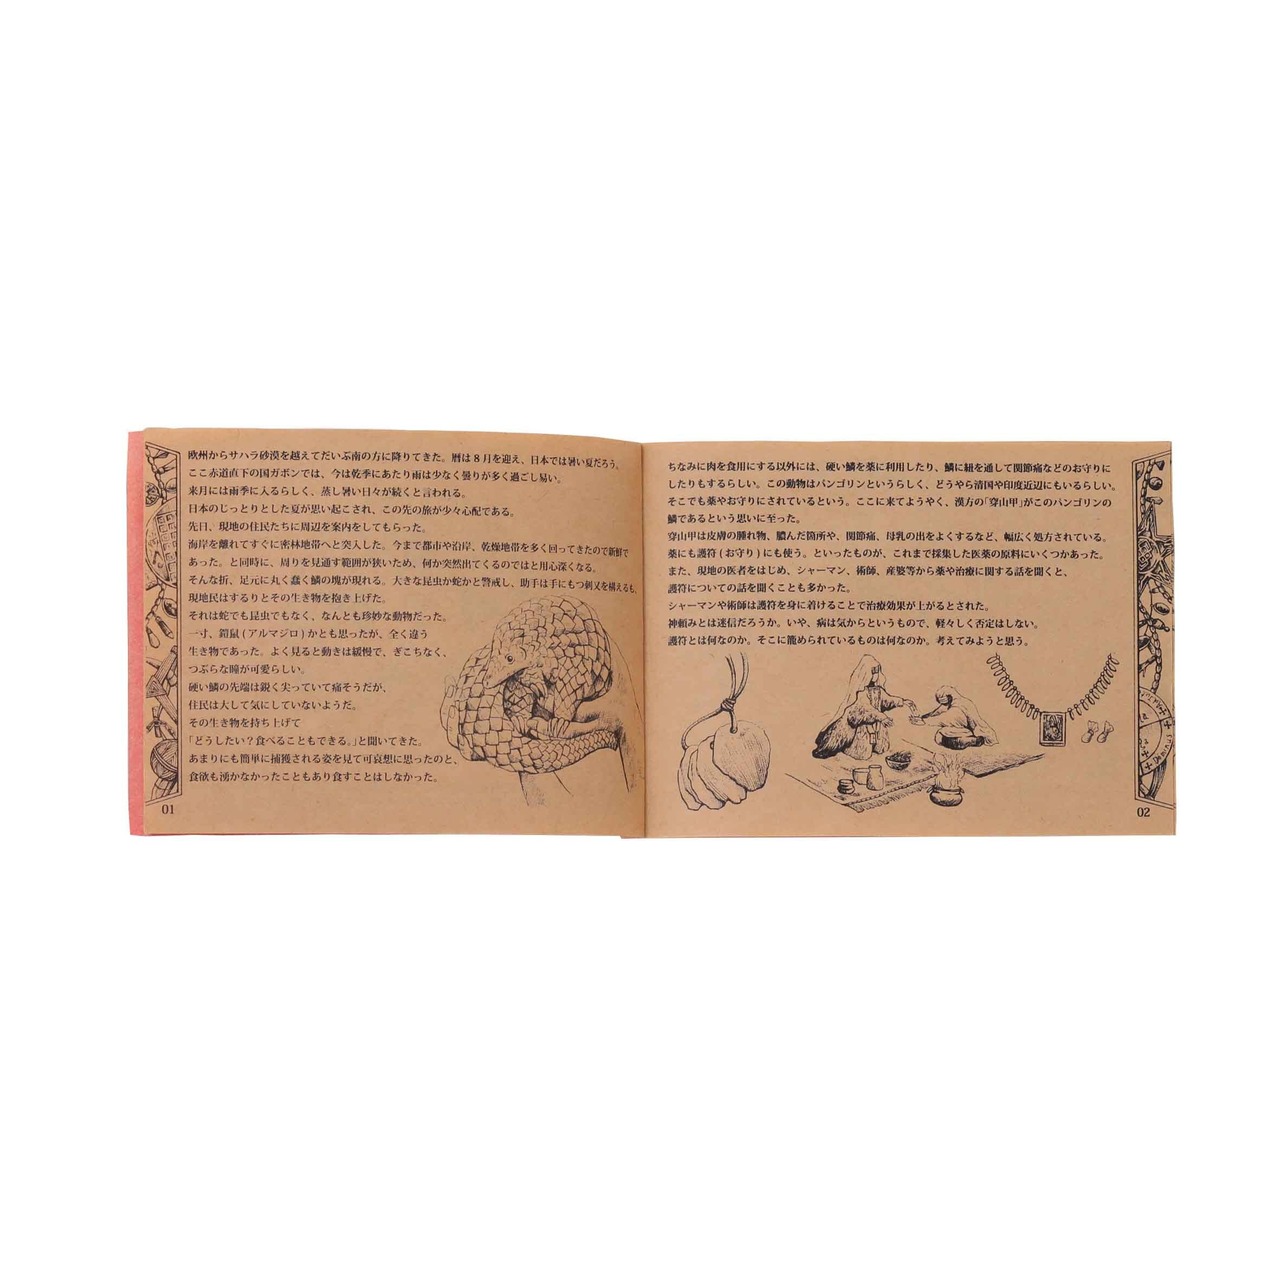 欧州からサハラ砂漠を越えてだいぶ南の方に降りてきた。暦は8月を迎え、日本では暑い夏だろう。
ここ赤道直下の国ガボンでは、今は乾季にあたり雨は少なく曇りが多く過ごし易い。
来月には雨季に入るらしく、蒸し暑い日々が続くと言われる。
日本のじっとりとした夏が思い起こされ、この先の旅が少々心配である。
先日、現地の住民たちに周辺を案内をしてもらった。
海岸を離れてすぐに密林地帯へと突入した。今まで都市や沿岸、乾燥地帯を多く回ってきたので新鮮で
あった。と同時に、周りを見通す範囲が狭いため、何か突然出てくるのではと用心深くなる。
そんな折、足元に丸く蠢く鱗の塊が現れる。大きな昆虫か蛇かと警戒し、助手は手にもつ刺又を構えるも、
現地民はするりとその生き物を抱き上げた。
それは蛇でも昆虫でもなく、なんとも珍妙な動物だった。
一寸、鎧鼠(アルマジロ)かとも思ったが、全く違う
生き物であった。よく見ると動きは緩慢で、ぎこちなく、
つぶらな瞳が可愛らしい。
硬い鱗の先端は鋭く尖っていて痛そうだが、
住民は大して気にしていないようだ。
その生き物を持ち上げて
「どうしたい？食べることもできる。」と聞いてきた。
あまりにも簡単に捕獲される姿を見て可哀想に思ったのと、
食欲も湧かなかったこともあり食すことはしなかった。
01
ちなみに肉を食用にする以外には、硬い鱗を薬に利用したり、鱗に紐を通して関節痛などのお守りに
したりもするらしい。この動物はパンゴリンというらしく、どうやら清国や印度近辺にもいるらしい。
そこでも薬やお守りにされているという。ここに来てようやく、漢方の「穿山甲」がこのパンゴリンの
鱗であるという思いに至った。
穿山甲は皮膚の腫れ物、膿んだ箇所や、関節痛、母乳の出をよくするなど、幅広く処方されている。
薬にも護符(お守り)にも使う。といったものが、これまで採集した医薬の原料にいくつかあった。
また、現地の医者をはじめ、シャーマン、術師、産婆等から薬や治療に関する話を聞くと、
護符についての話を聞くことも多かった。
シャーマンや術師は護符を身に着けることで治療効果が上がるとされた。
神頼みとは迷信だろうか。いや、病は気からというもので、軽々しく否定はしない。
護符とは何なのか。そこに籠められているものは何なのか。考えてみようと思う。
02